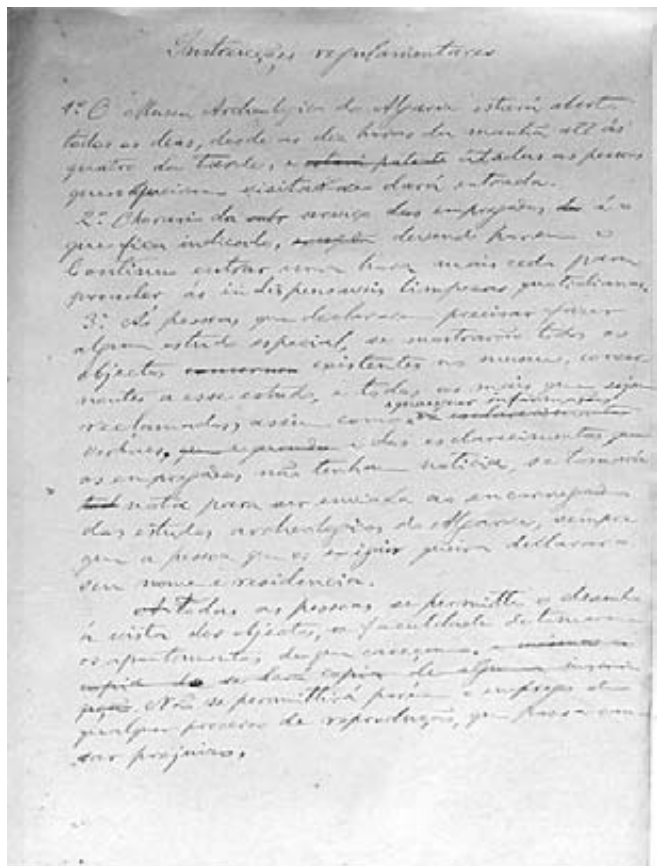 Instrucções regulamentares
1º O Museu Archeologico do Algarve estará aberto
todos os dias, desde as dez horas da manhã até ás
quatro da tarde, e estará patente a todas as pessoas
que queiram visital-o dará entrada.
2º O horario do serviço dos empregados é o
que fica indicado, devendo porem o
Continuo entrar uma hora mais cedo para
proceder ás indispensaveis limpezas quotidianas.
3º Ás pessoas que declararem precisar fazer
algum estudo especial, se mostrarão todos os
objectos existentes no museu, concer-
nentes a esse estudo, e todos os mais que sejam
quaesquer informações
reclamados, assim como esclarecimentos
verbaes, e dos esclarecimentos que
os empregados não tenham noticia, se tomará
nota para ser enviada ao encarregado
dos estudos archeologicos do Algarve, sempre
que a pessoa que os exigir queira declarar o
seu nome e residencia.
A todas as pessoas se permitte o desenho
á vista dos objectos, e a faculdade de tomarem
os apontamentos de que careçam,
copia de se dará copia de alguma inscri-
pção. Não se permittirá porem o emprego de
qualquer processo de reproducção, que possa cau-
sar prejuizo.